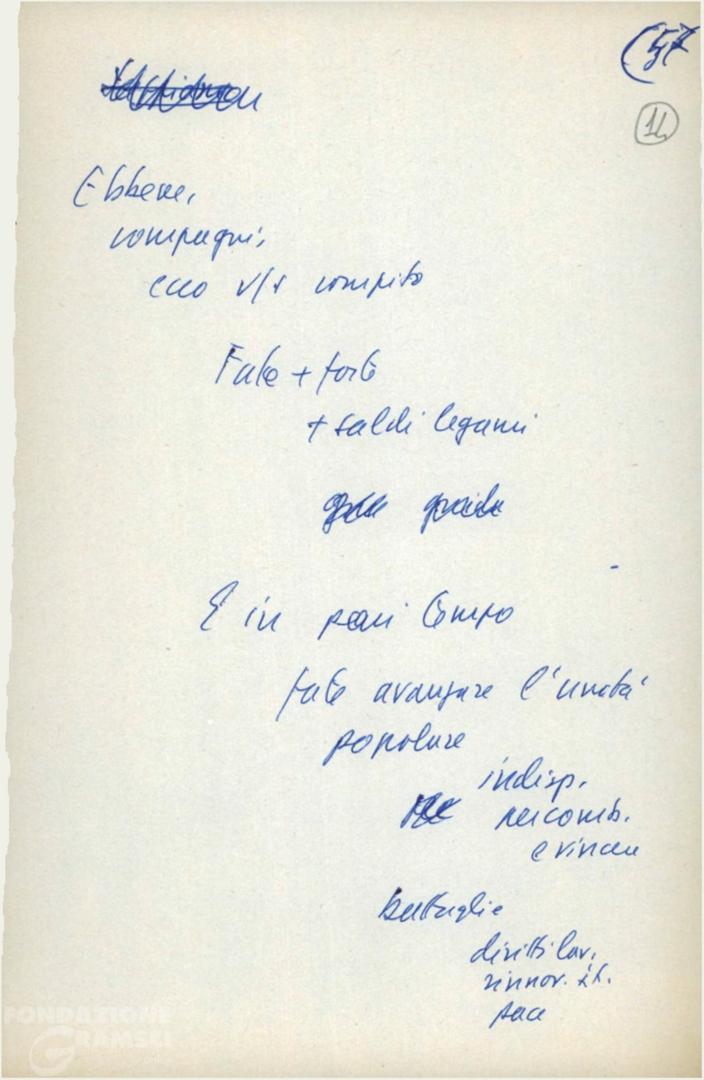 (57
14
Ebbene,
compagni,
ecco v/s compito
Fate + forte
+ saldi legami
guida
E in pari tempo
fate avanzare l'unità
popolare
indisp.
per comb.
e vincere
battaglie
diritti lav.
rinnov. it.
pace
FONDAZIONE
GRAMSCI